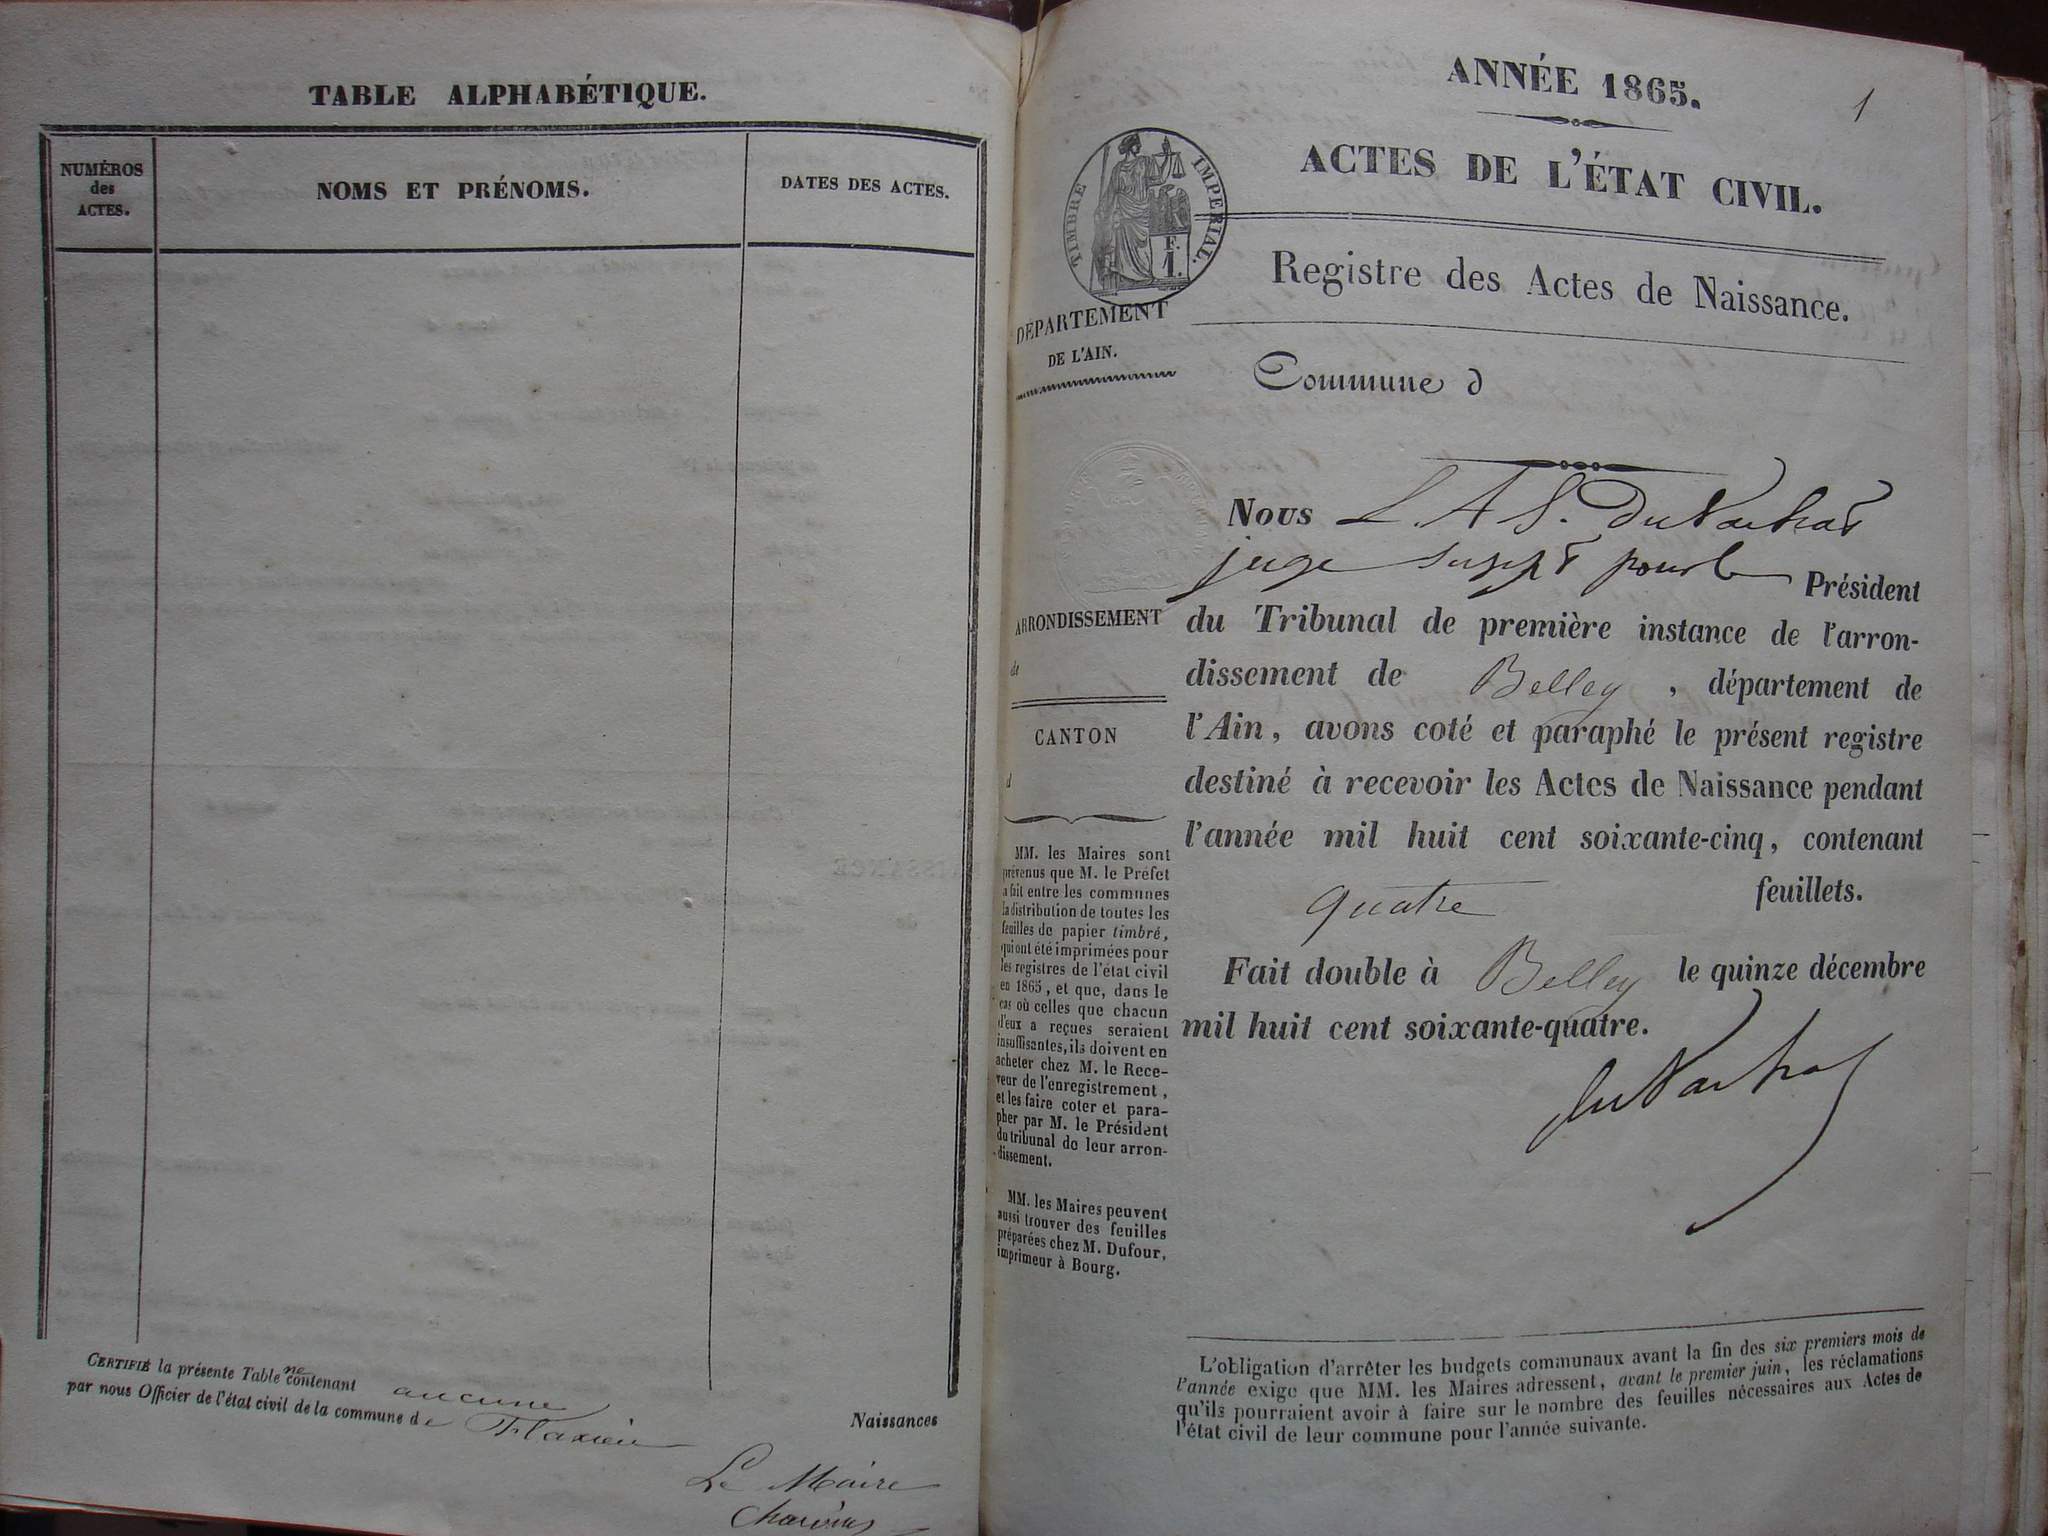 TABLE ALPHABÉTIQUE.
NUMÉROS
des
ACTES.
NOMS ET PRÉNOMS.
DATES DES ACTES.
CERTIFIÉ la présente Table ne contenant aucune
Naissances
par nous Officier de l'état civil de la commune de Flaxieu
Le Maire
ANNÉE 1865.
1
ACTES DE L'ÉTAT CIVIL.
TIMBRE IMPERIAL.
F.
1.
Registre des Actes de Naissance.
DÉPARTEMENT
DE L'AIN.
Commune d
ARRONDISSEMENT
de
CANTON
d
MM. les Maires sont
prévenus que M. le Préfet
a fait entre les communes
la distribution de toutes les
feuilles de papier timbré,
qui ont été imprimées pour
les registres de l'état civil
en 1865, et que, dans le
cas où celles que chacun
d'eux a reçues seraient
insuffisantes, ils doivent en
acheter chez M. le Rece-
veur de l'enregistrement,
et les faire coter et para-
pher par M. le Président
du tribunal de leur arron-
dissement.
MM. les Maires peuvent
aussi trouver des feuilles
préparées chez M. Dufour,
imprimeur à Bourg.
Nous L. A. S.
juge suppt pour le Président
du Tribunal de première instance de l'arron-
dissement de Belley, département de
l'Ain, avons coté et paraphé le présent registre
destiné à recevoir les Actes de Naissance pendant
l'année mil huit cent soixante-cinq, contenant
quatre feuillets.
Fait double à Belley le quinze décembre
mil huit cent soixante-quatre.
L'obligation d'arrêter les budgets communaux avant la fin des six premiers mois de
l'année exige que MM. les Maires adressent, avant le premier juin, les réclamations
qu'ils pourraient avoir à faire sur le nombre des feuilles nécessaires aux Actes de
l'état civil de leur commune pour l'année suivante.